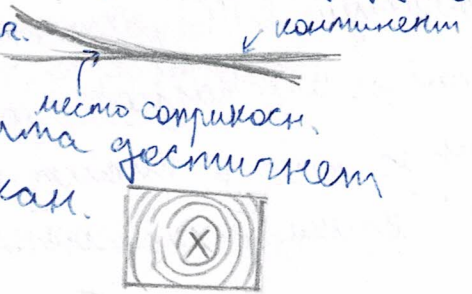 г.
континент
место соприкосн.
достигнет
X